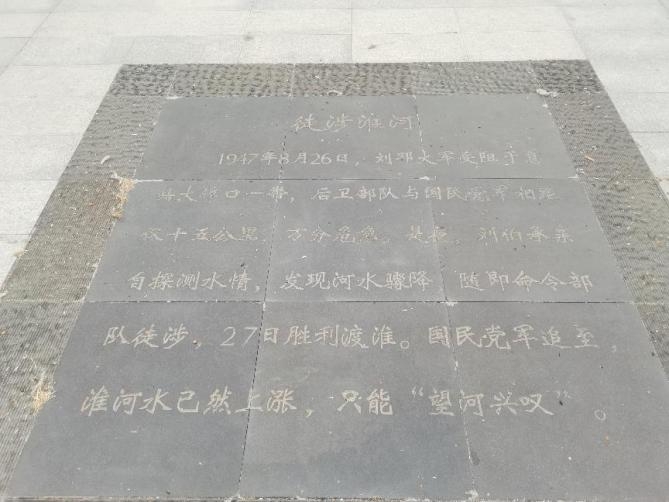 徒涉淮河
1947年8月26日，刘邓大军受阻于息
县大埠口一带，后卫部队与国民党军相距
仅十五公里，万分危急。是夜，刘伯承亲
自探测水情，发现河水骤降，随即命令部
队徒涉，27日胜利渡淮。国民党军追至，
淮河水已然上涨，只能“望河兴叹”。